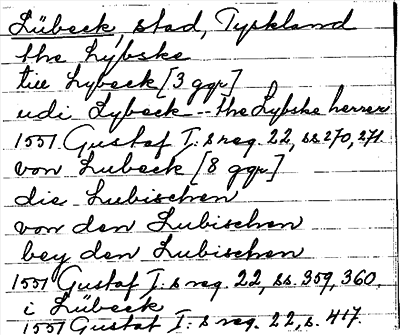 Lübeck, stad, Tyskland
the Lÿbske
till Lybeck [3 ggr]
udi Lybeck -- the Lÿbske herrer
1551 Gustaf I:s reg. 22, ss 270, 271.
von Lubeck [8 ggr]
die Lubischen
von den Lubischen
bey den Lubischen
1551 Gustaf I:s reg. 22, ss. 359, 360.
i Lübeck
1551 Gustaf I:s reg. 22, s. 417.